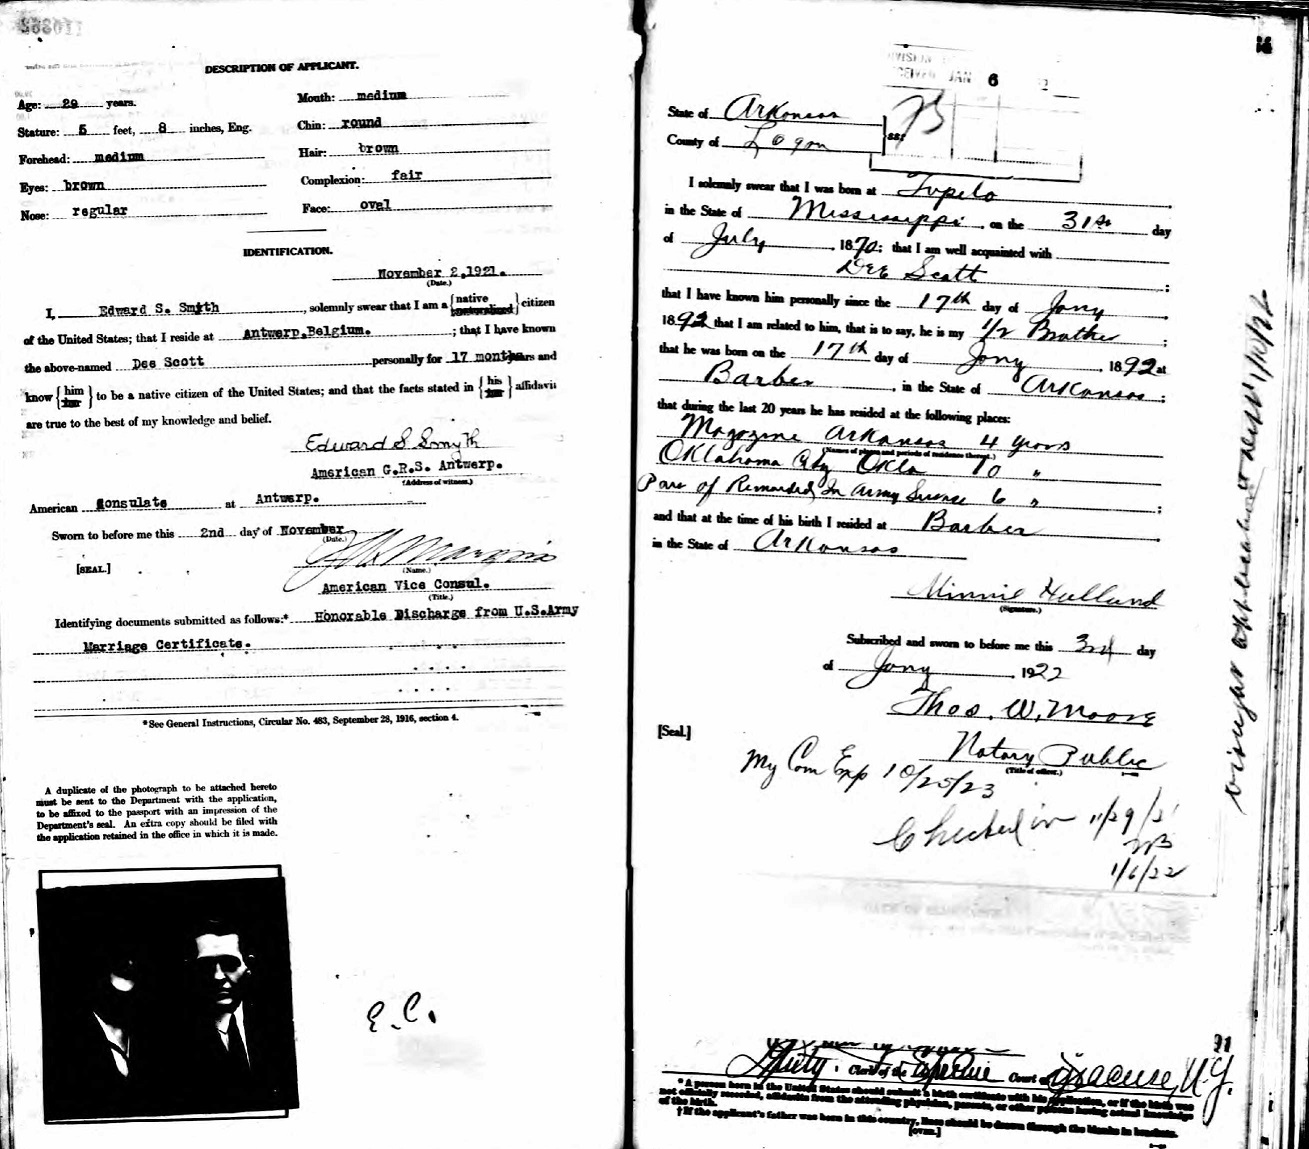 DESCRIPTION OF APPLICANT.
Age: 29 years.
Mouth: medium
Stature: 5 feet, 8 inches, Eng.
Chin: round
Forehead: medium
Hair: brown
Eyes: brown
Complexion: fair
Nose: regular
Face: oval
IDENTIFICATION.
November 2, 1921.
(Date.)
I, Edward S. Smith, solemnly swear that I am a {native naturalized} citizen
of the United States; that I reside at Antwerp, Belgium.; that I have known
the above-named Dee Scott personally for 17 months and
know {him her} to be a native citizen of the United States; and that the facts stated in {his her} affidavit
are true to the best of my knowledge and belief.
Edward S. Smyth
American G.R.S. Antwerp.
(Address of witness.)
American Consulate at Antwerp.
Sworn to before me this 2nd day of November
(Date.)
[SEAL.]
(Name.)
American Vice Consul.
(Title.)
Identifying documents submitted as follows:* Honorable Discharge from U.S.Army
Marriage Certificate.
*See General Instructions, Circular No. 483, September 28, 1916, section 4.
A duplicate of the photograph to be attached hereto
must be sent to the Department with the application,
to be affixed to the passport with an impression of the
Department's seal. An extra copy should be filed with
the application retained in the office in which it is made.
E.C.
JAN 6
State of Arkansas
County of Logan
ss:
I solemnly swear that I was born at Tupelo
in the State of Mississippi, on the 31st day
of July, 1870; that I am well acquainted with
Dee Scott;
that I have known him personally since the 17th day of Jany
1892 that I am related to him, that is to say, he is my 1/2 Brother;
that he was born on the 17th day of Jany, 1892 at
Barber, in the State of Arkansas;
that during the last 20 years he has resided at the following places:
Magazine Arkansas 4 years
(Names of places and periods of residence thereat.)
Oklahoma City Okla 10 "
Part of Remainder In Army Service 6 ";
and that at the time of his birth I resided at Barber
in the State of Arkansas
Minnie Holland
(Signature.)
Subscribed and sworn to before me this 3rd day
of Jany, 1922
Thos. W. Moore
[Seal.]
Notary Public
(Title of officer.)
My Com Exp 10/25/23
Checked in 11/29/21
1/6/22
Deputy Clerk of the Supreme Court of Syracuse, N.Y.
*A person born in the United States should submit a birth certificate with his application, or if the birth was
not officially recorded, affidavits from the attending physician, parents, or other persons having actual knowledge
of the birth.
†If the applicant's father was born in this country, lines should be drawn through the blanks in brackets.
[OVER.]